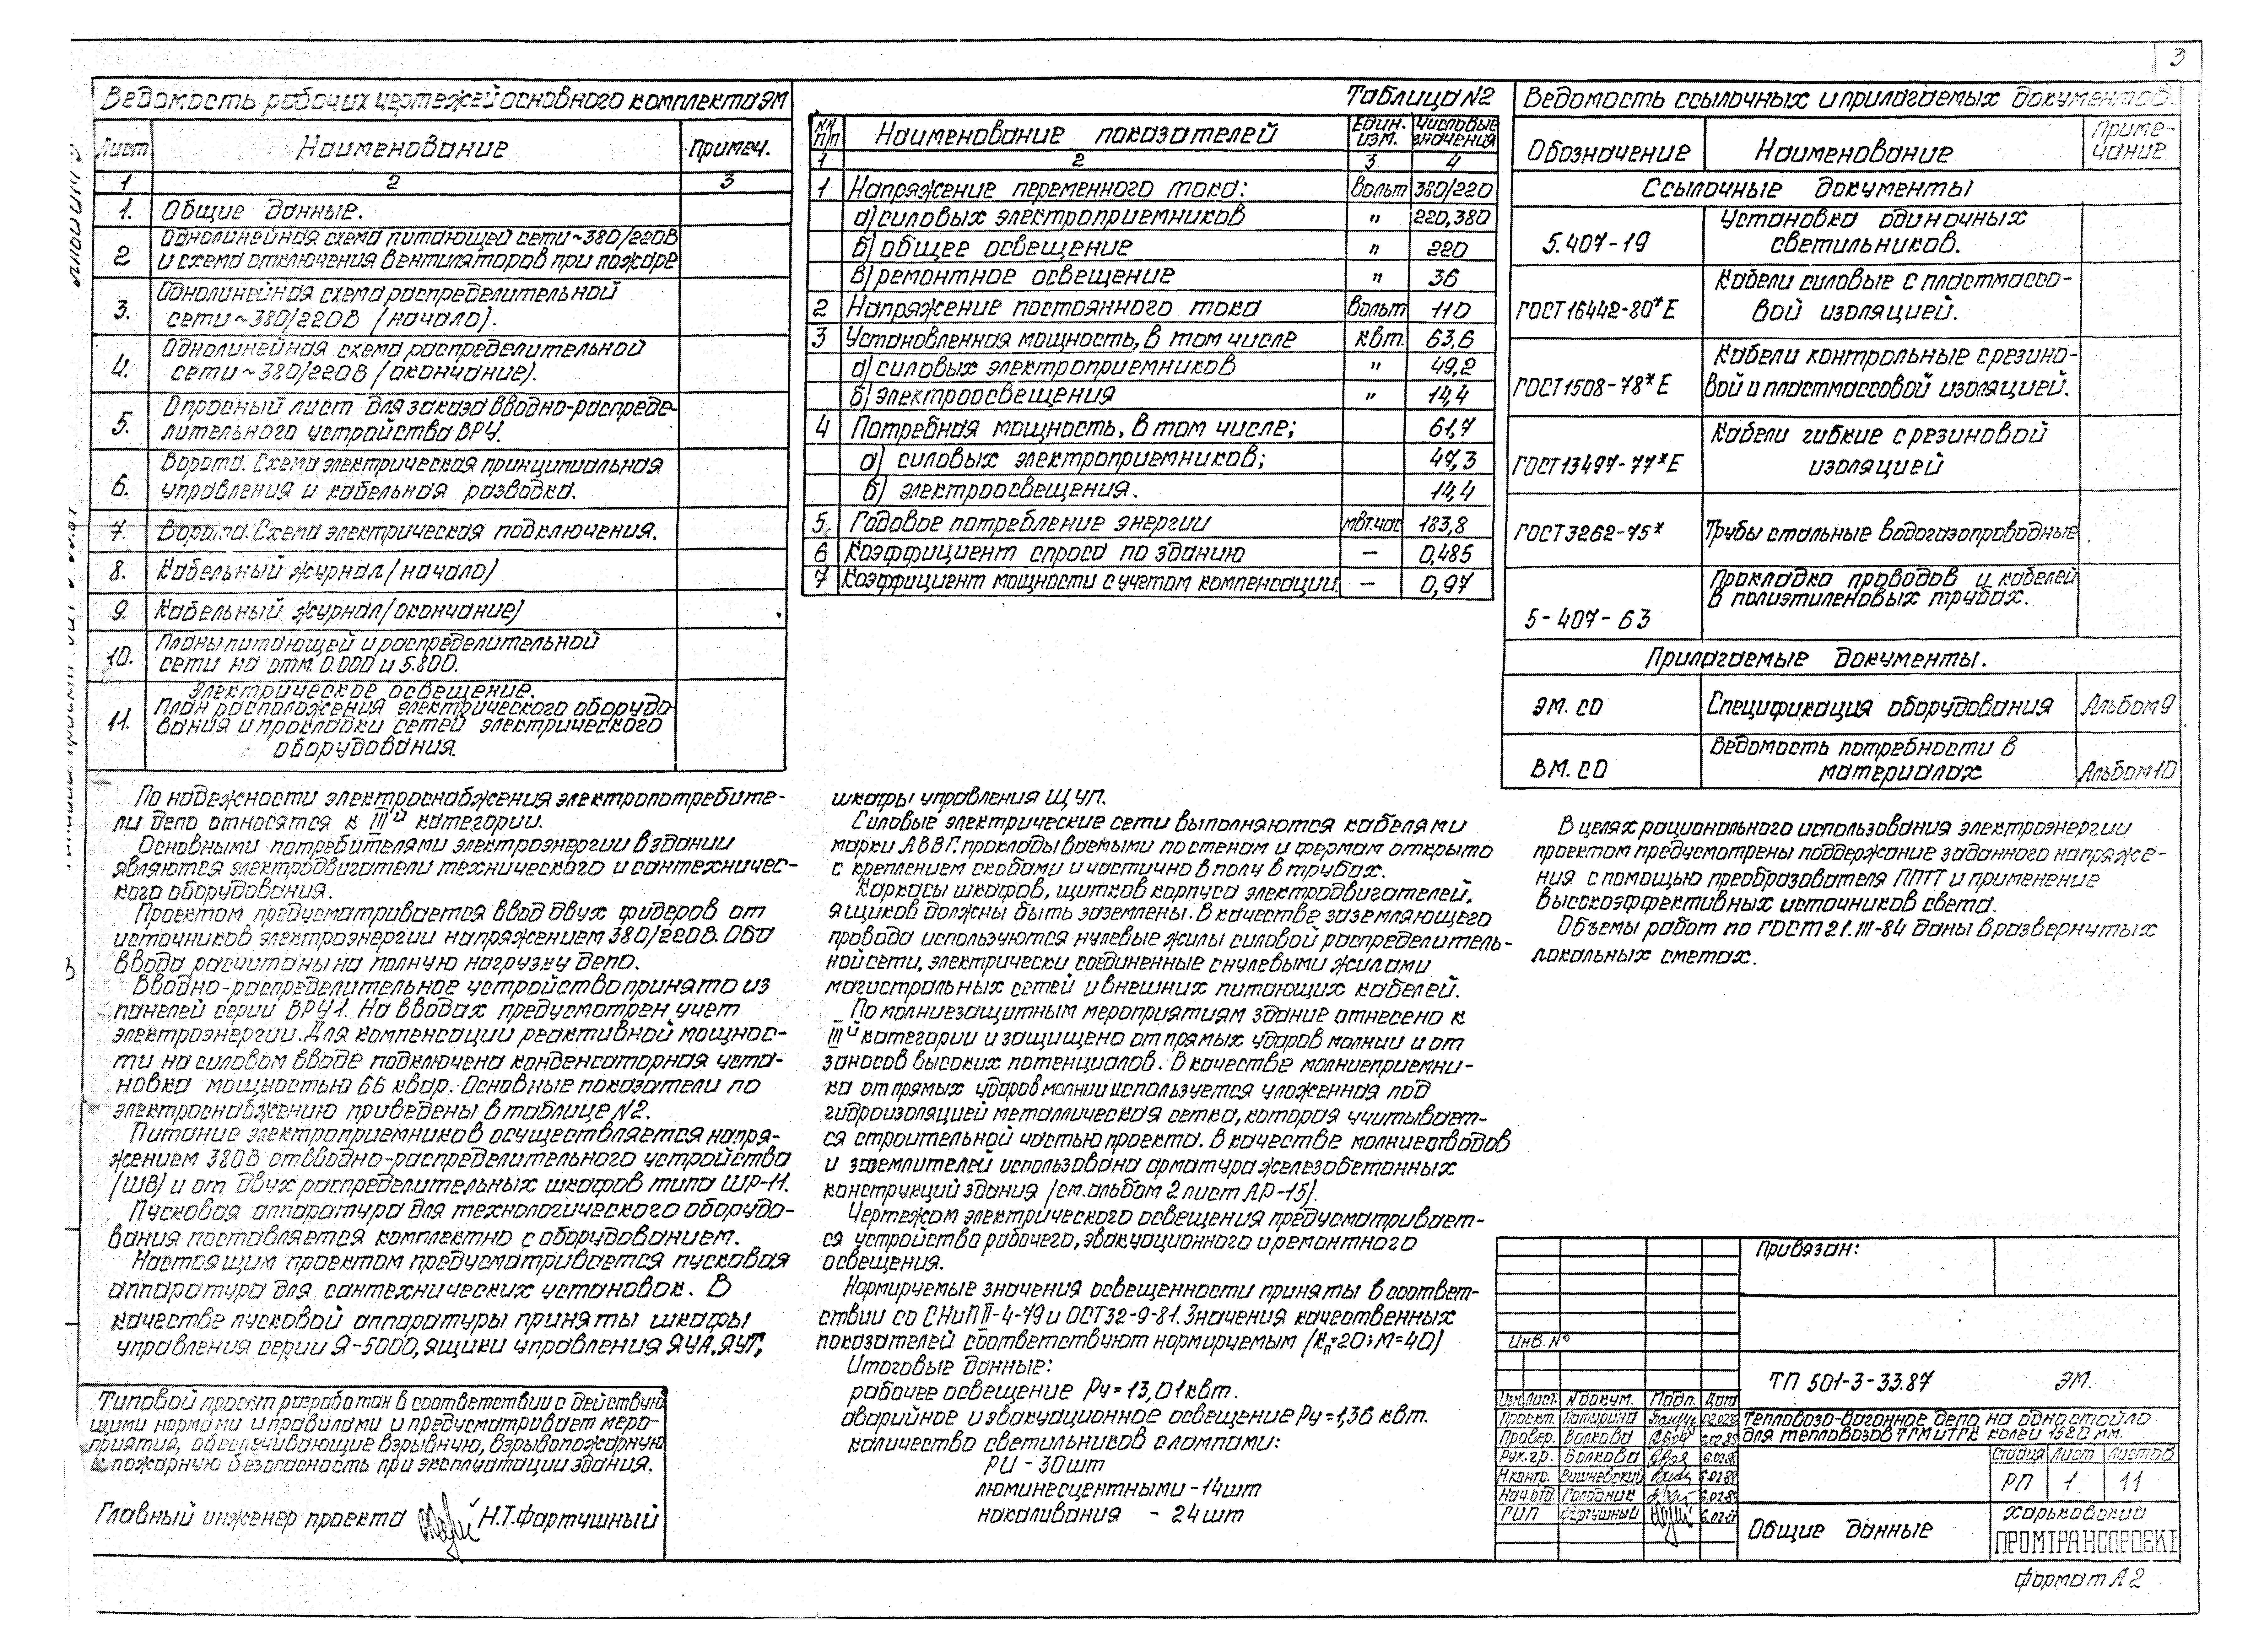 3
Ведомость рабочих чертежей основного комплекта ЭМ
Лист Наименование Примеч.
1 2 3
1. Общие данные.
2 Однолинейная схема питающей сети ~380/220В
и схема отключения вентиляторов при пожаре
3. Однолинейная схема распределительной
сети ~380/220В (начало).
4. Однолинейная схема распределительной
сети ~380/220В (окончание).
5. Опросный лист для заказа вводно-распреде-
лительного устройства ВРУ.
6. Ворота. Схема электрическая принципиальная
управления и кабельная разводка.
7. Ворота. Схема электрическая подключения.
8. Кабельный журнал (начало)
9. Кабельный журнал (окончание)
10. Планы питающей и распределительной
сети на отм. 0.000 и 5.800.
11. Электрическое освещение.
План расположения электрического оборудо-
вания и прокладки сетей электрического
оборудования.
Таблица N2
NN п/п Наименование показателей Един. изм. Числовые значения
1 2 3 4
1 Напряжение переменного тока: Вольт 380/220
а) силовых электроприемников " 220,380
б) общее освещение " 220
в) ремонтное освещение " 36
2 Напряжение постоянного тока Вольт 110
3 Установленная мощность, в том числе квт. 63,6
а) силовых электроприемников " 49,2
б) электроосвещения " 14,4
4 Потребная мощность, в том числе; 61,7
а) силовых электроприемников; 47,3
б) электроосвещения. 14,4
5 Годовое потребление энергии мвт.час 183,8
6 Коэффициент спроса по зданию — 0,485
7 Коэффициент мощности с учетом компенсации. — 0,97
Ведомость ссылочных и прилагаемых документов.
Обозначение Наименование Приме-
чание
Ссылочные документы
5.407-19 Установка одиночных
светильников.
ГОСТ 16442-80*Е Кабели силовые с пластмассо-
вой изоляцией.
ГОСТ 1508-78*Е Кабели контрольные с резино-
вой и пластмассовой изоляцией.
ГОСТ 13497-77*Е Кабели гибкие с резиновой
изоляцией
ГОСТ 3262-75* Трубы стальные водогазопроводные
5-407-63 Прокладка проводов и кабелей
в полиэтиленовых трубах.
Прилагаемые документы.
ЭМ.СО Спецификация оборудования Альбом 9
ВМ.СО Ведомость потребности в
материалах Альбом 10
По надежности электроснабжения электропотребите-
ли депо относятся к III й категории.
Основными потребителями электроэнергии в здании
являются электродвигатели технического и сантехничес-
кого оборудования.
Проектом предусматривается ввод двух фидеров от
источников электроэнергии напряжением 380/220В. Оба
ввода расчитаны на полную нагрузку депо.
Вводно-распределительное устройство принято из
панелей серии ВРУ1. На вводах предусмотрен учет
электроэнергии. Для компенсации реактивной мощнос-
ти на силовом вводе подключена конденсаторная уста-
новка мощностью 66 квар. Основные показатели по
электроснабжению приведены в таблице N2.
Питание электроприемников осуществляется напря-
жением 380В от вводно-распределительного устройства
(ШВ) и от двух распределительных шкафов типа ШР-11.
Пусковая аппаратура для технологического оборудо-
вания поставляется комплектно с оборудованием.
Настоящим проектом предусматривается пусковая
аппаратура для сантехнических установок. В
качестве пусковой аппаратуры приняты шкафы
управления серии Я-5000, ящики управления ЯУА, ЯУГ,
шкафы управления ЩУП.
Силовые электрические сети выполняются кабелями
марки АВВГ, прокладываемыми по стенам и фермам открыто
с креплением скобами и частично в полу в трубах.
Каркасы шкафов, щитков корпуса электродвигателей,
ящиков должны быть заземлены. В качестве заземляющего
провода используются нулевые жилы силовой распределитель-
ной сети, электрически соединенные с нулевыми жилами
магистральных сетей и внешних питающих кабелей.
По молниезащитным мероприятиям здание отнесено к
III й категории и защищено от прямых ударов молнии и от
заносов высоких потенциалов. В качестве молниеприемни-
ка от прямых ударов молнии используется уложенная под
гидроизоляцией металлическая сетка, которая учитывает-
ся строительной частью проекта. В качестве молниеотводов
и заземлителей использована арматура железобетонных
конструкций здания (см. альбом 2 лист АР-15).
Чертежом электрического освещения предусматривает-
ся устройство рабочего, эвакуационного и ремонтного
освещения.
Нормируемые значения освещенности приняты в соответ-
ствии со СНиП II-4-79 и ОСТ 32-9-81. Значения качественных
показателей соответствуют нормируемым (Кп=20; М=40)
Итоговые данные:
рабочее освещение Ру=13,01квт.
аварийное и эвакуационное освещение Ру=1,36 квт.
количество светильников с лампами:
РЦ - 30шт
люминесцентными - 14шт
накаливания - 24шт
В целях рационального использования электроэнергии
проектом предусмотрены поддержание заданного напряже-
ния с помощью преобразователя ППТТ и применение
высокоэффективных источников света.
Объемы работ по ГОСТ 21.111-84 даны в развернутых
локальных сметах.
Типовой проект разработан в соответствии с действую-
щими нормами и правилами и предусматривает меро-
приятия, обеспечивающие взрывную, взрывопожарную
и пожарную безопасность при эксплуатации здания.
Главный инженер проекта Н.Т.Фортушный
Привязан:
Инв. N°
ТП 501-3-33.87 ЭМ.
Изм Лист N докум. Подп. Дата
Проект.
Провер. Волкова
Рук.гр. Волкова
Н.контр. Вишневский
Нач.отд Голодник
ГИП Фортушный
Тепловозо-вагонное депо на одно стойло
для тепловозов ТГМ и ТГК колеи 1520 мм.
Стадия Лист Листов
РП 1 11
Общие данные
Харьковский
ПРОМТРАНСПРОЕКТ
Формат А2